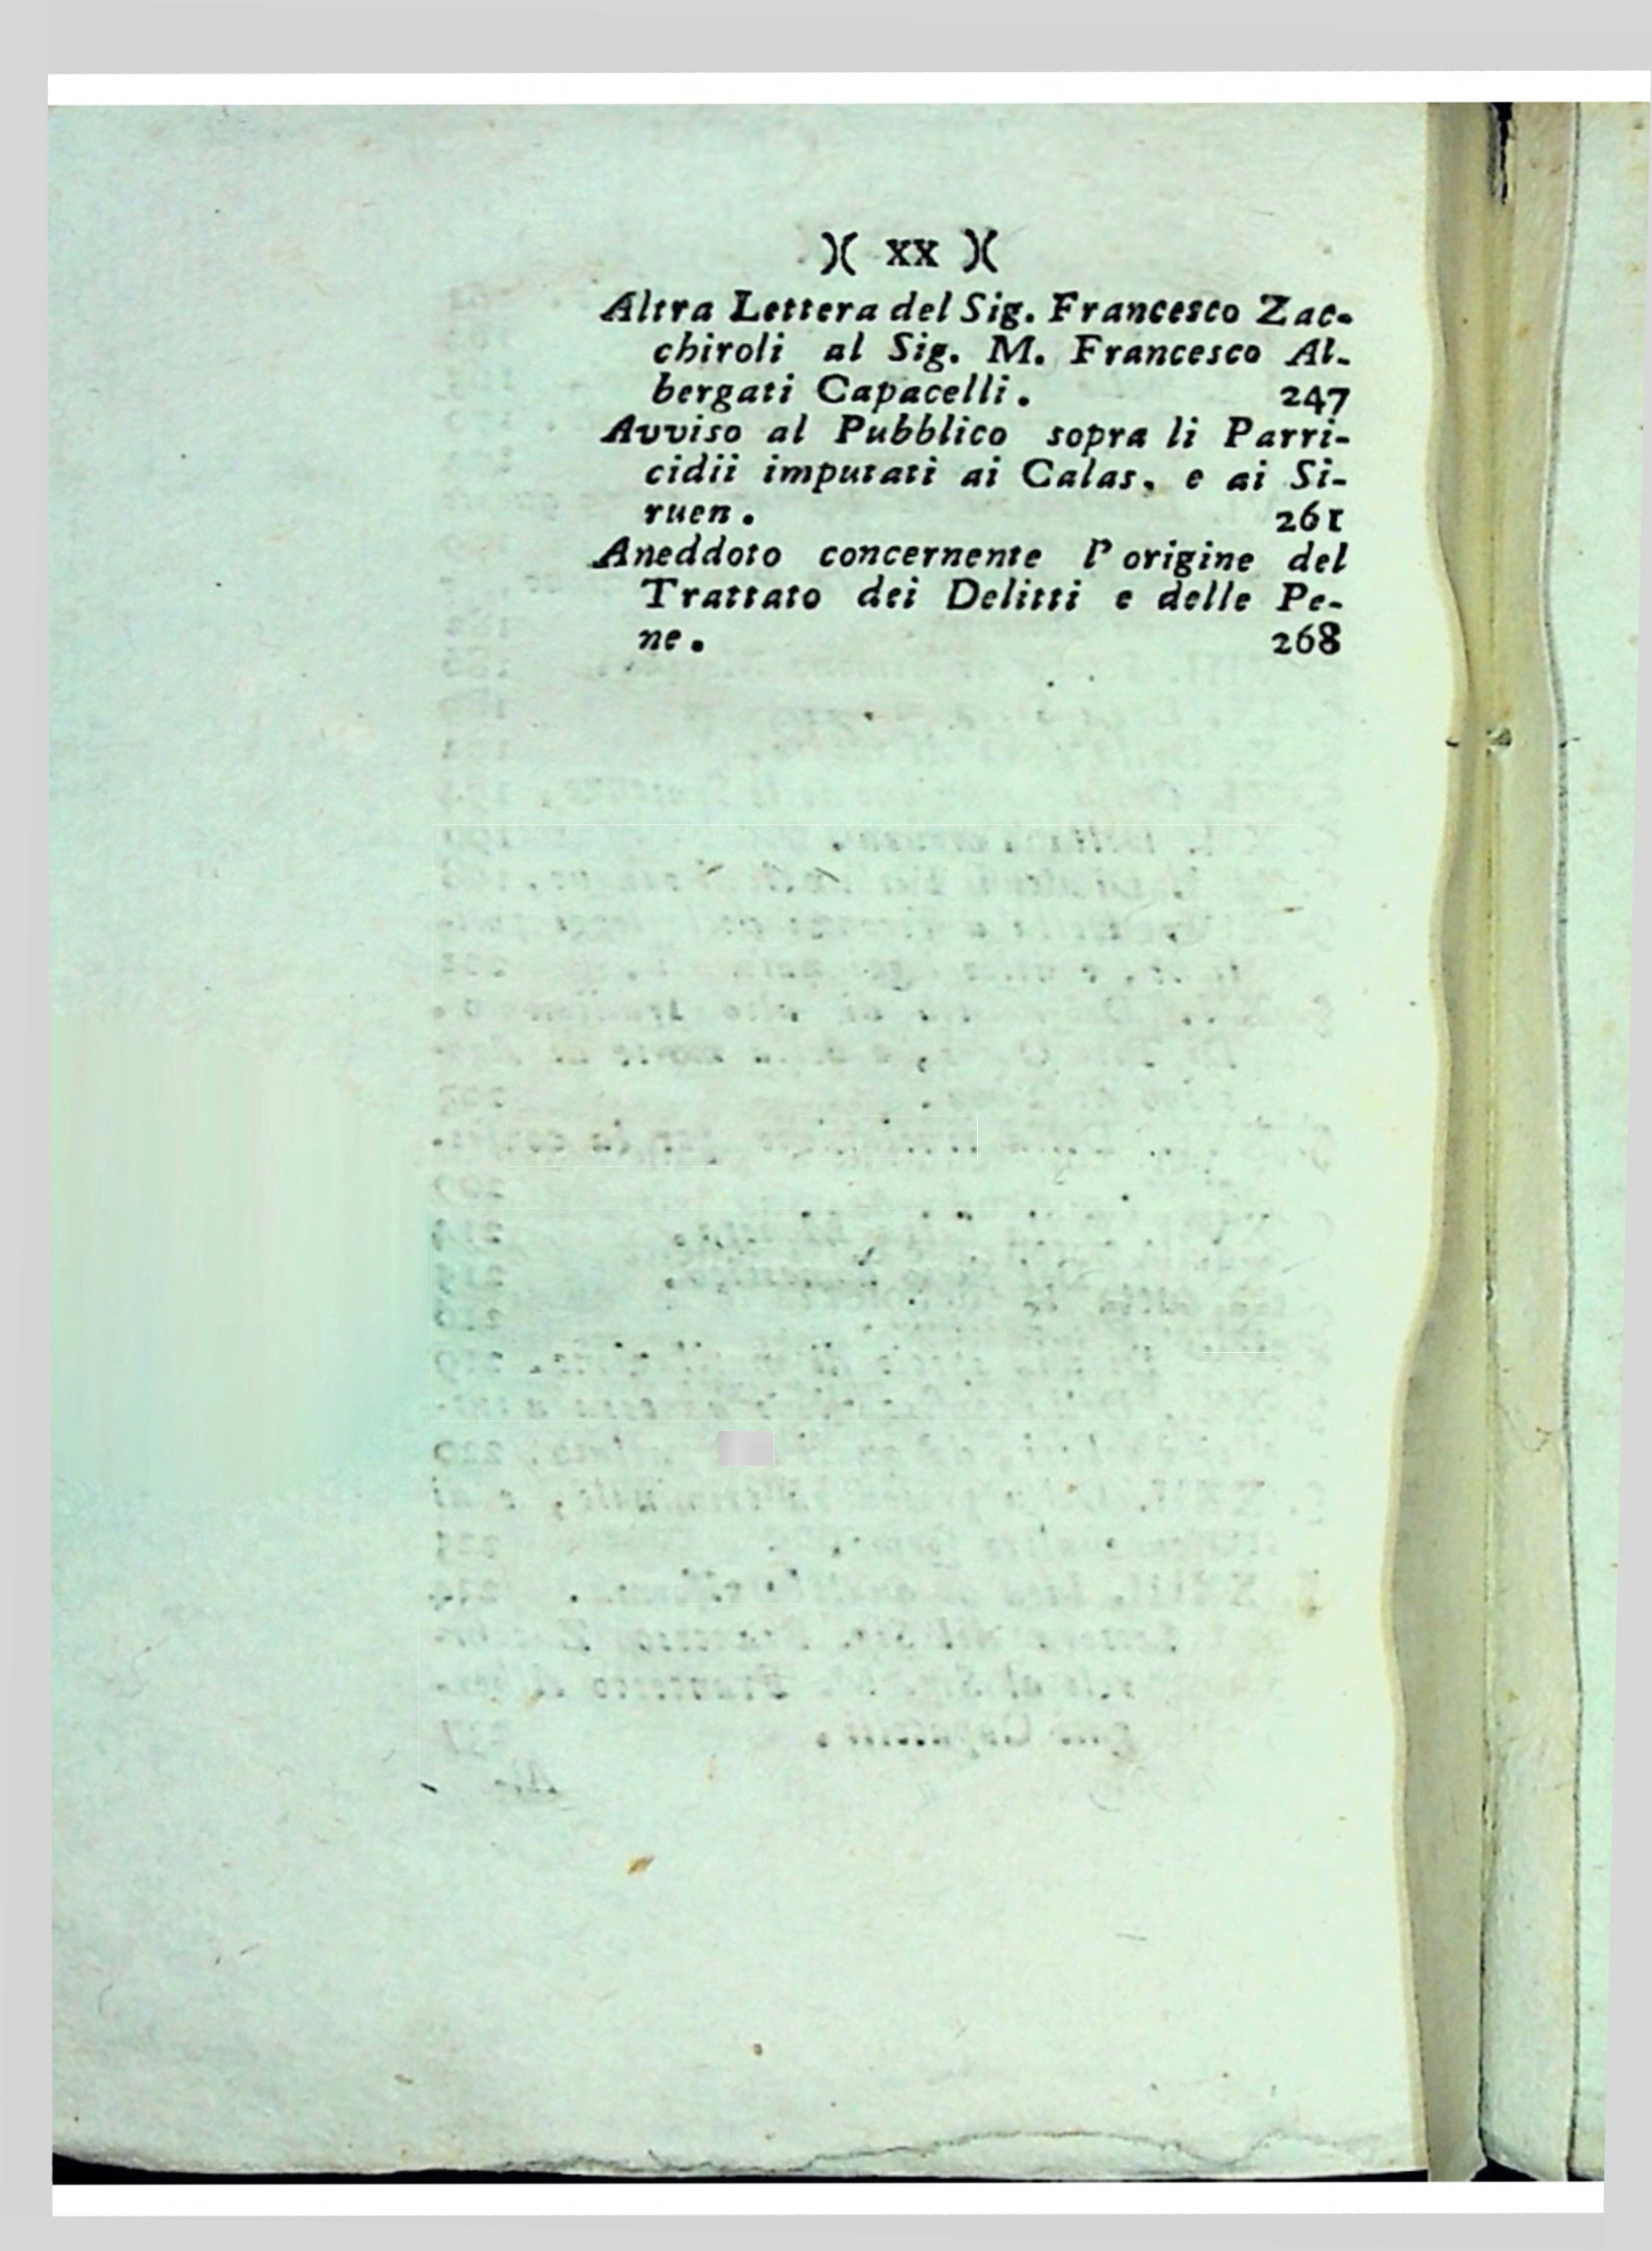 )( xx )(
Altra Lettera del Sig. Francesco Zac-
chiroli al Sig. M. Francesco Al-
bergati Capacelli. 247
Avviso al Pubblico sopra li Parri-
cidii imputati ai Calas, e ai Si-
ruen. 261
Aneddoto concernente l'origine del
Trattato dei Delitti e delle Pe-
ne. 268